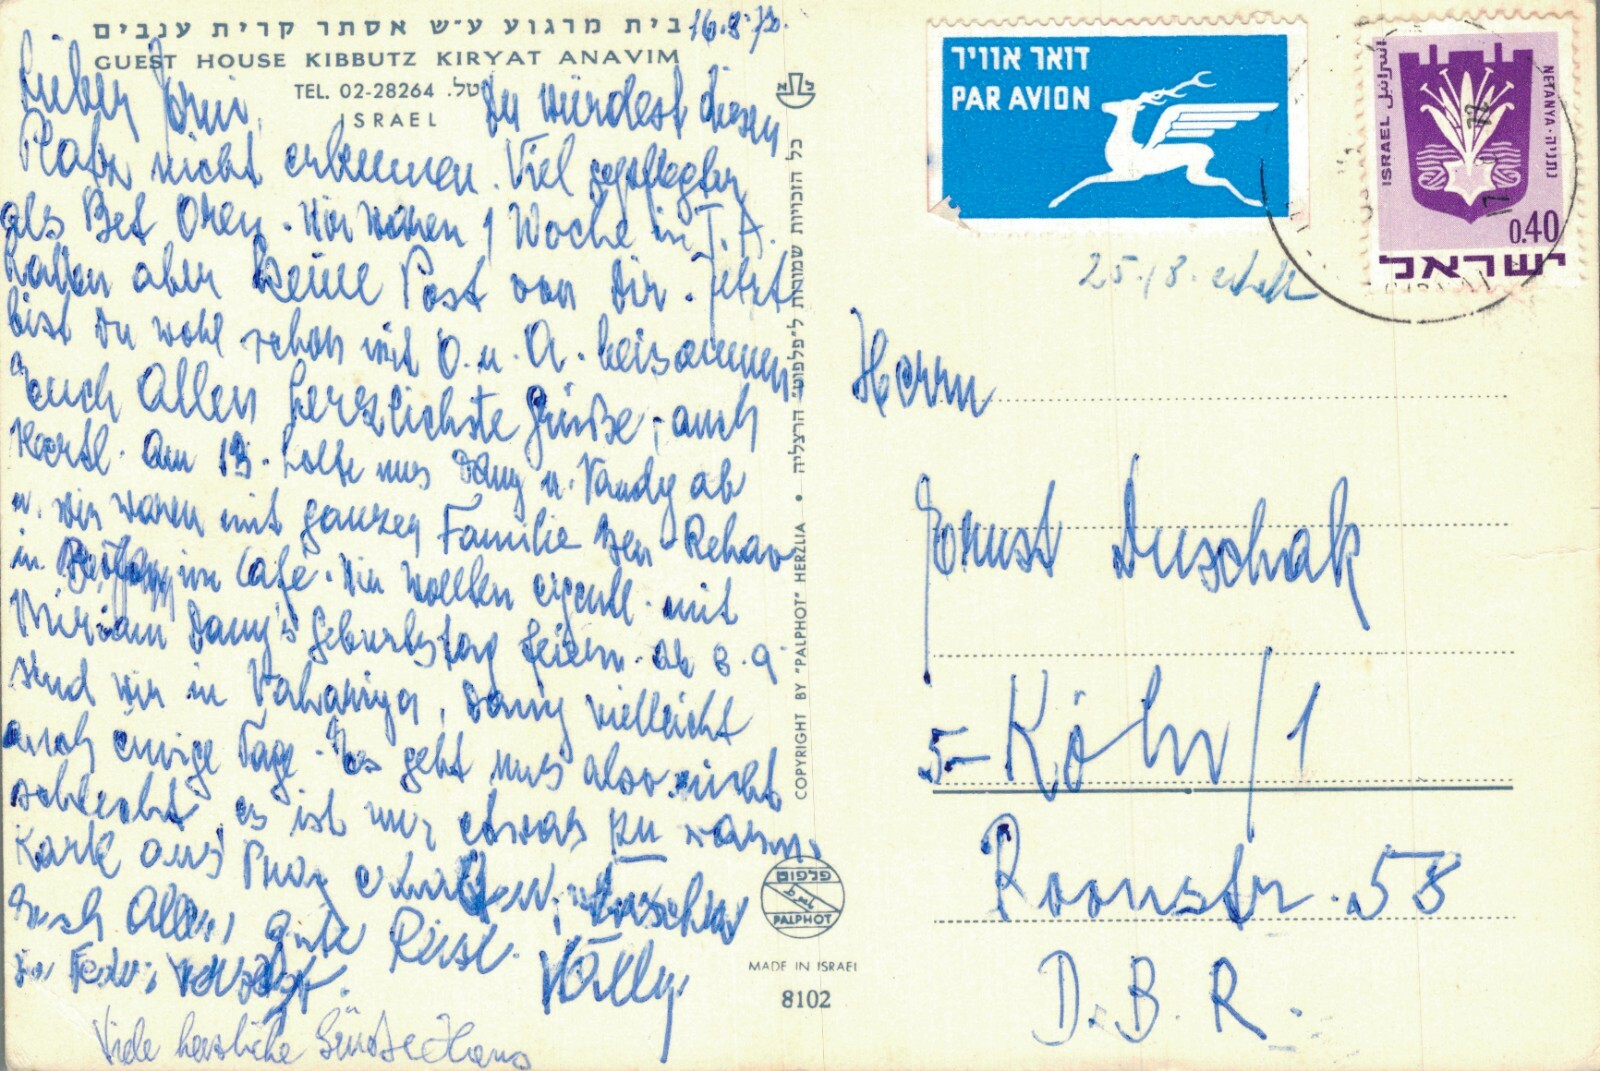 בית מרגוע ע״ש אסתר קרית ענבים
16.8.73.
GUEST HOUSE KIBBUTZ KIRYAT ANAVIM
TEL. 02-28264 .טל
ISRAEL
Lieber
Du würdest diesen
Platz nicht erkennen. Viel gepflegter
als Bet Oren. Wir waren 1 Woche in T. A.
hatten aber keine Post von Dir. Jetzt
bist Du wohl schon mit O. u. A. beisammen
Euch Allen herzlichste Grüße, auch
Am 13. holte uns Dany u. Vandy ab
u. wir waren mit ganzer Familie Ben-Rehav
in im Café. Wir wollten eigentl. mit
Miriam Dany's Geburtstag feiern. ab 3.9.
sind wir in Nahariya, Dany vielleicht
auch einige Tage. Es geht uns also nicht
schlecht, es ist nur etwas zu warm.
Karte aus Prag erhalten,
Euch Allen gute Reise.
Viele herzliche Grüsse Hans
כל הזכויות שמורות ל״פלפוט״ הרצליה • COPYRIGHT BY "PALPHOT" HERZLIA
פלפוט
PALPHOT
MADE IN ISRAEL
8102
דואר אוויר
PAR AVION
اسرائيل ISRAEL
NETANYA · נתניה
0.40
ישראל
25./8. erhalt
Herrn
Ernst Duschak
5-Köln/1
Roonstr. 58
D. B. R.